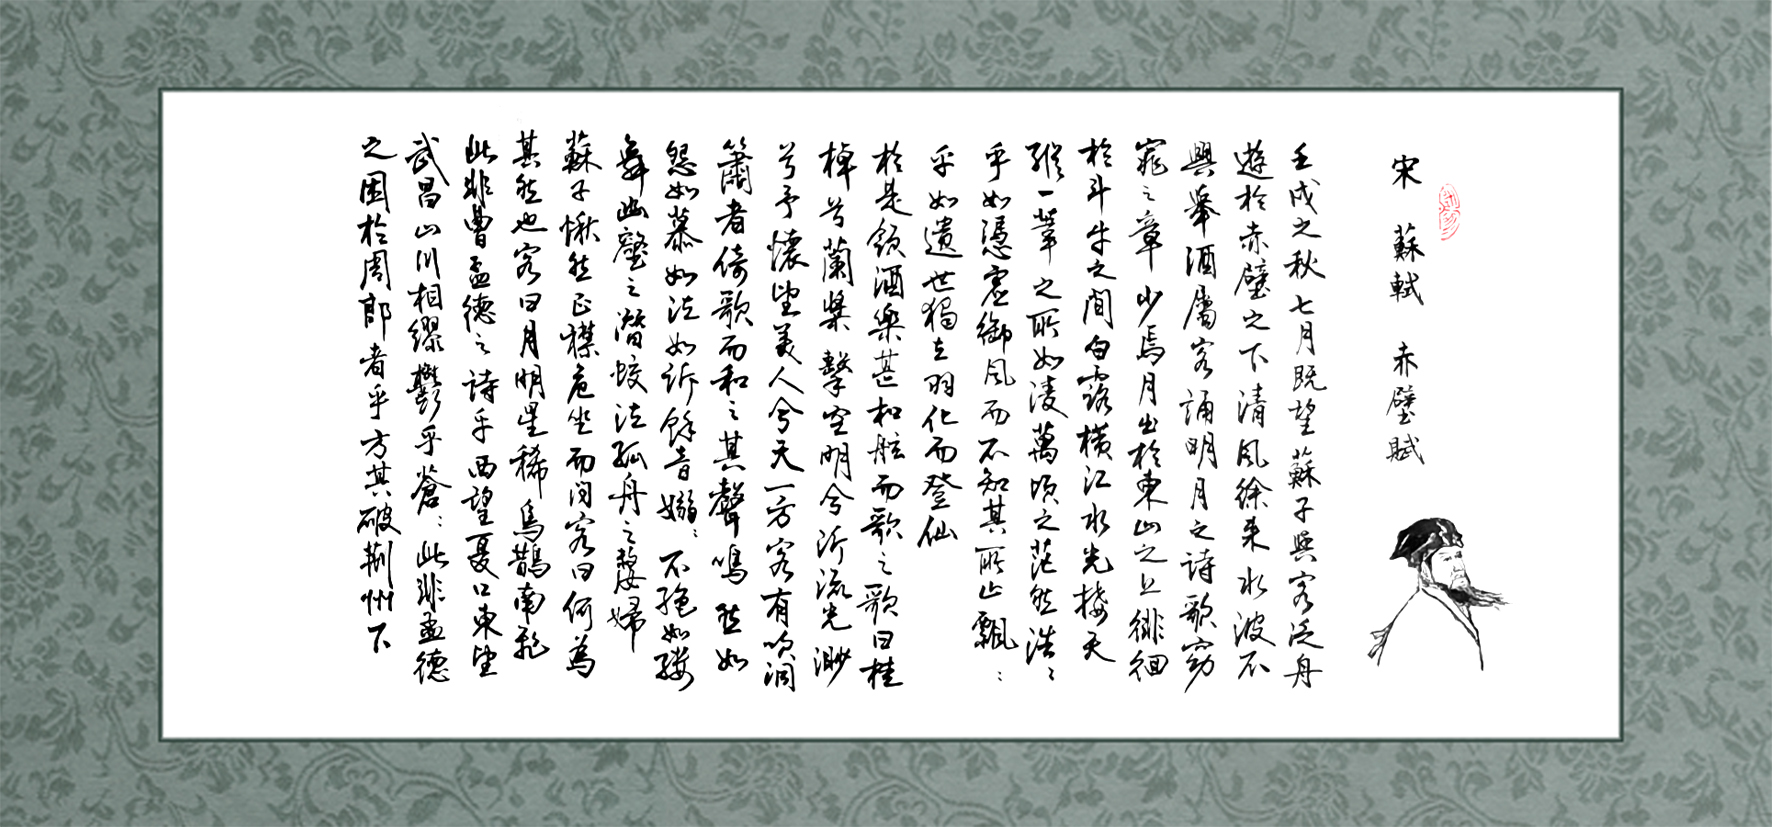 宋 蘇軾 赤壁賦
壬戌之秋七月既望蘇子與客泛舟
遊於赤壁之下清風徐來水波不
興舉酒屬客誦明月之詩歌窈
窕之章少焉月出於東山之上徘徊
於斗牛之間白露橫江水光接天
縱一葦之所如凌萬頃之茫然浩々
乎如憑虛御風而不知其所止飄々
乎如遺世獨立羽化而登仙
於是飲酒樂甚扣舷而歌之歌曰桂
棹兮蘭槳擊空明兮泝流光渺
兮予懷望美人兮天一方客有吹洞
簫者倚歌而和之其聲鳴然如
怨如慕如泣如訴餘音嫋々不絕如縷
舞幽壑之潛蛟泣孤舟之嫠婦
蘇子愀然正襟危坐而問客曰何為
其然也客曰月明星稀烏鵲南飛
此非曹孟德之詩乎西望夏口東望
武昌山川相繆鬱乎蒼々此非孟德
之困於周郎者乎方其破荊州下